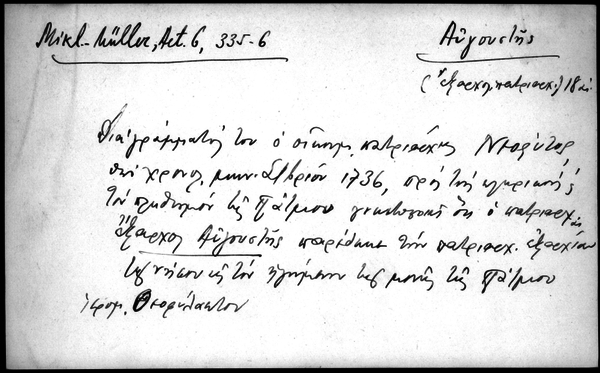 Mikl.-Müller, Act. 6, 335-6
Αὐγουστῆς
(Ἔξαρχος πατριαρχ.) 18 αἰ.
Διὰ γράμματός του ὁ οἰκουμ. πατριάρχης Νεόφυτος,
ὑπὸ χρονολ. 1736, πρὸς τοὺς κληρικοὺς
τὸν πληθυσμὸν τῆς Πάτμου γνωστοποιεῖ ὅτι ὁ πατριαρχ.
Ἔξαρχος Αὐγουστῆς παρέδωκε τὴν πατριαρχ. ἐξαρχίαν
τῆς νήσου εἰς τὸν ἡγούμενον τῆς μονῆς τῆς Πάτμου
ἱερομ. Θεοφύλακτον